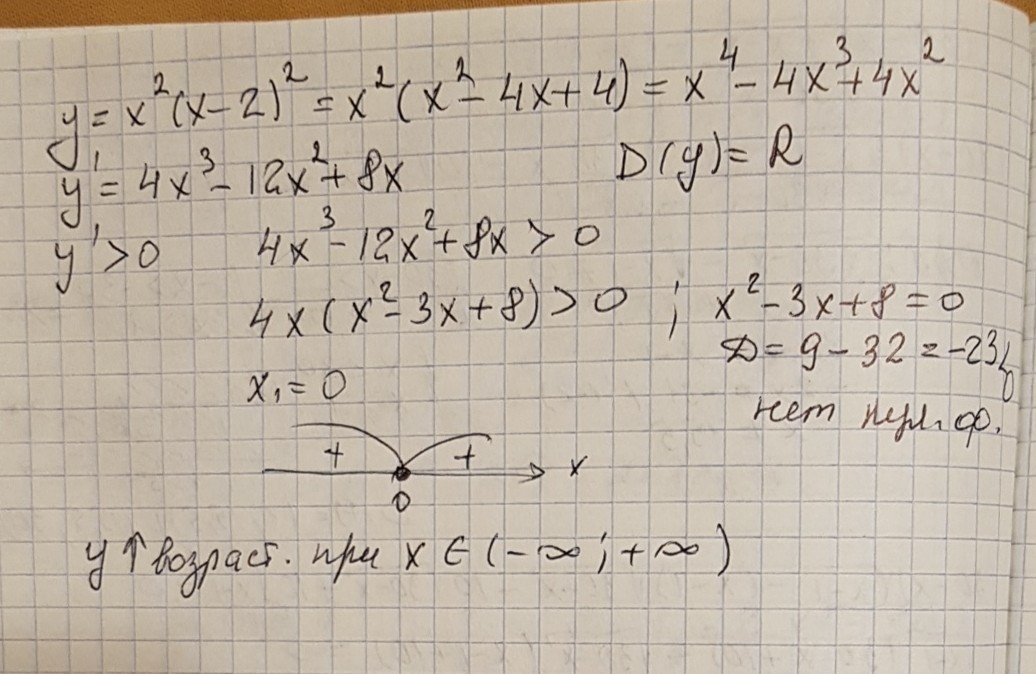 y = x²(x-2)² = x²(x²-4x+4) = x⁴-4x³+4x²
y' = 4x³-12x²+8x D(y) = R
y' > 0 4x³-12x²+8x > 0
4x(x²-3x+8) > 0 ; x²-3x+8 = 0
D = 9-32 = -23<0
x₁ = 0 нет нул. ф.
+ + x
0
y ↑ возраст. при x ∈ (-∞; +∞)